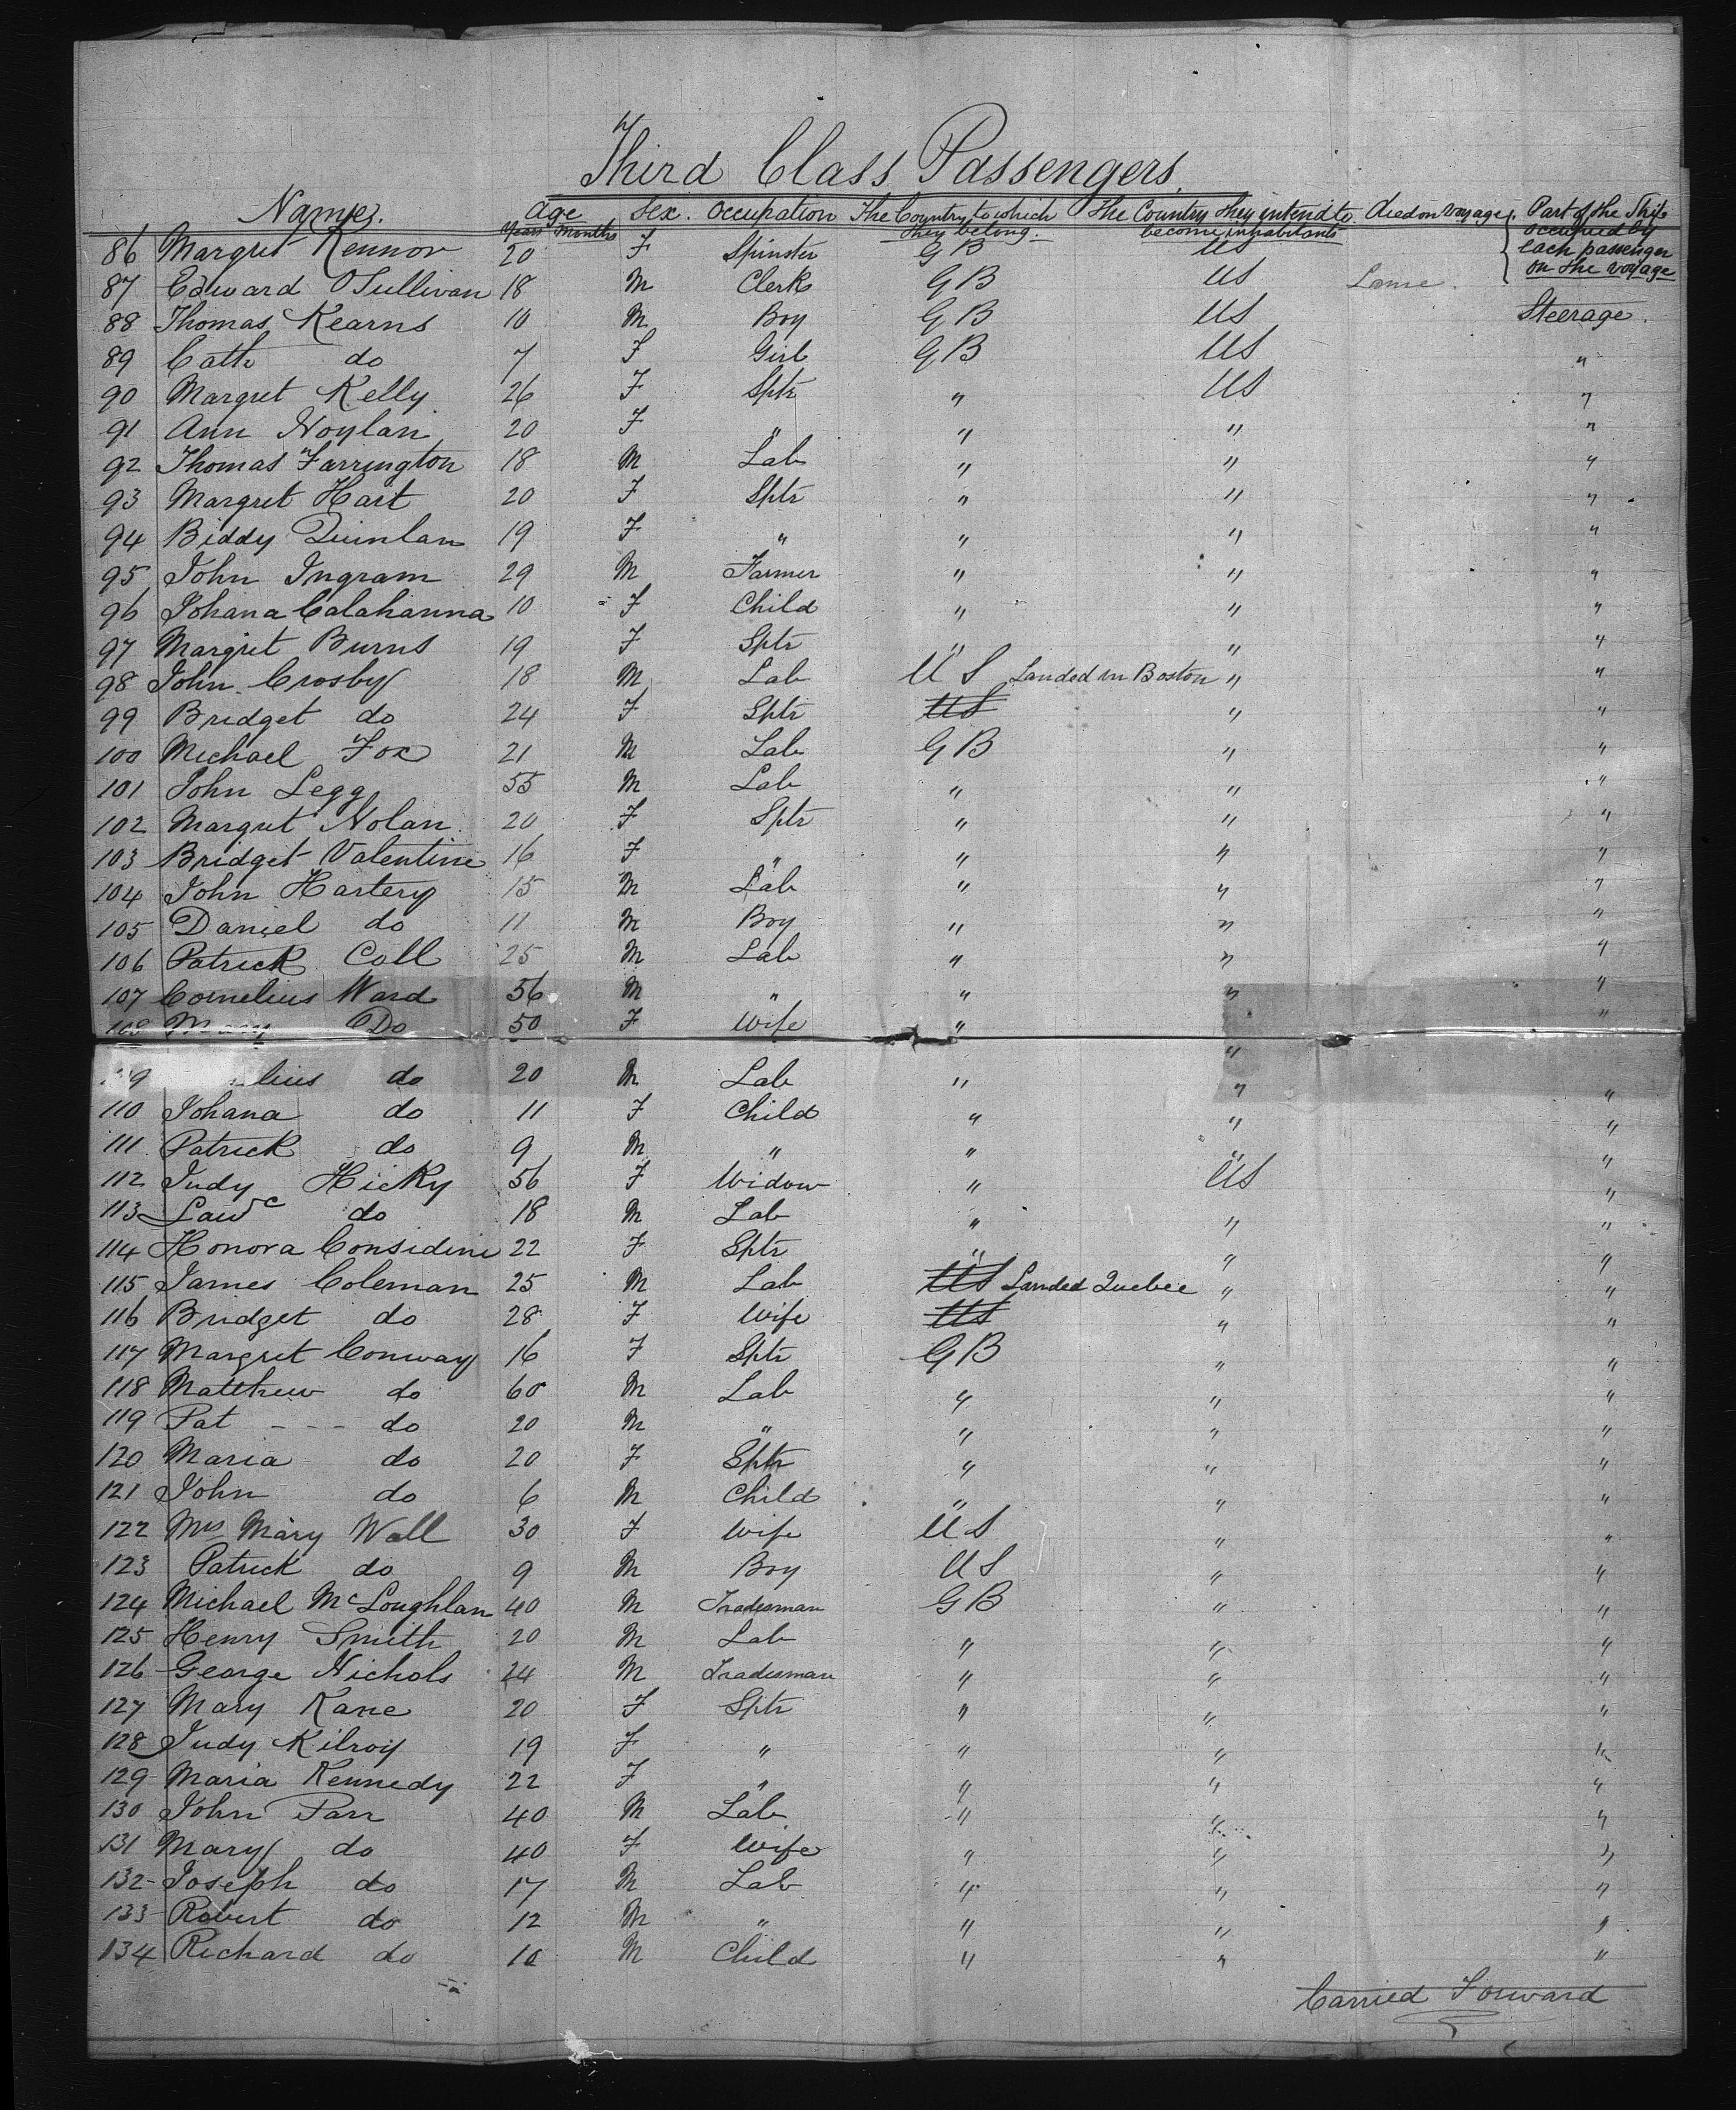 Third Class Passengers.
Names. Age Sex. Occupation The Country to which The Country they intend to Died on voyage. Part of the Ship
Years Months they belong. become inhabitants occupied by
each passenger
on the voyage
86 Margret Kennor 20 F Spinster GB US
87 Edward OSullivan 18 M Clerk GB US Lame.
88 Thomas Kearns 10 M Boy GB US Steerage.
89 Cath do 7 F Girl GB US "
90 Margret Kelly 26 F Sptr " US "
91 Ann Noylan 20 F " " " "
92 Thomas Farrington 18 M Lab " " "
93 Margret Hart 20 F Sptr " " "
94 Biddy Quinlan 19 F " " " "
95 John Ingram 29 M Farmer " " "
96 Johana Calahanna 10 F Child " " "
97 Margret Burns 19 F Sptr " " "
98 John Crosby 18 M Lab US Landed in Boston " "
99 Bridget do 24 F Sptr US " "
100 Michael Fox 21 M Lab GB " "
101 John Legg 55 M Lab " " "
102 Margret Nolan 20 F Sptr " " "
103 Bridget Valentine 16 F " " " "
104 John Hartery 15 M Lab " " "
105 Daniel do 11 M Boy " " "
106 Patrick Coll 25 M Lab " " "
107 Cornelius Ward 56 M " " " "
108 Mary Do 50 F Wife " " "
lius do 20 M Lab " " "
110 Johana do 11 F Child " " "
111 Patrick do 9 M " " " "
112 Judy Hicky 56 F Widow " US "
113 Lawc do 18 M Lab " " "
114 Honora Considine 22 F Sptr " " "
115 James Coleman 25 M Lab US Landed Quebec " "
116 Bridget do 28 F Wife US " "
117 Margret Conway 16 F Sptr GB " "
118 Matthew do 60 M Lab " " "
119 Pat - - - do 20 M " " " "
120 Maria do 20 F Sptr " " "
121 John do 6 M Child " " "
122 Mrs Mary Wall 30 F Wife US " "
123 Patrick do 9 M Boy US " "
124 Michael McLoughlan 40 M Tradesman GB " "
125 Henry Smith 20 M Lab " " "
126 George Nichols 24 M Tradesman " " "
127 Mary Kane 20 F Sptr " " "
128 Judy Kilroy 19 F " " " "
129 Maria Kennedy 22 F " " " "
130 John Parr 40 M Lab " " "
131 Mary do 40 F Wife " " "
132 Joseph do 17 M Lab " " "
133 Robert do 12 M " " " "
134 Richard do 10 M Child " " "
Carried Forward